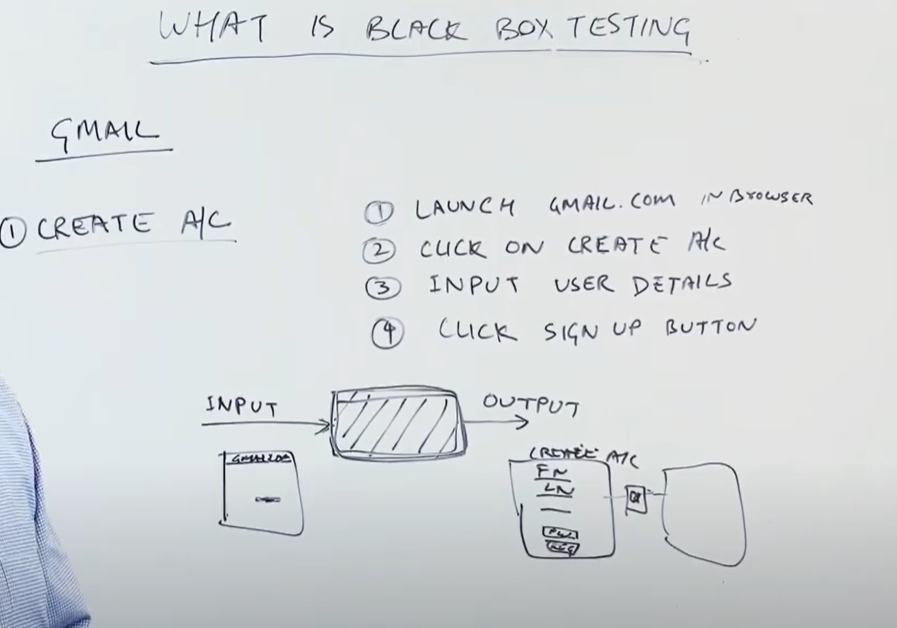 WHAT IS BLACK BOX TESTING
GMAIL
① CREATE A/C
① LAUNCH GMAIL.COM IN BROWSER
② CLICK ON CREATE A/C
③ INPUT USER DETAILS
④ CLICK SIGN UP BUTTON
INPUT
OUTPUT
CREATE A/C
FN
LN